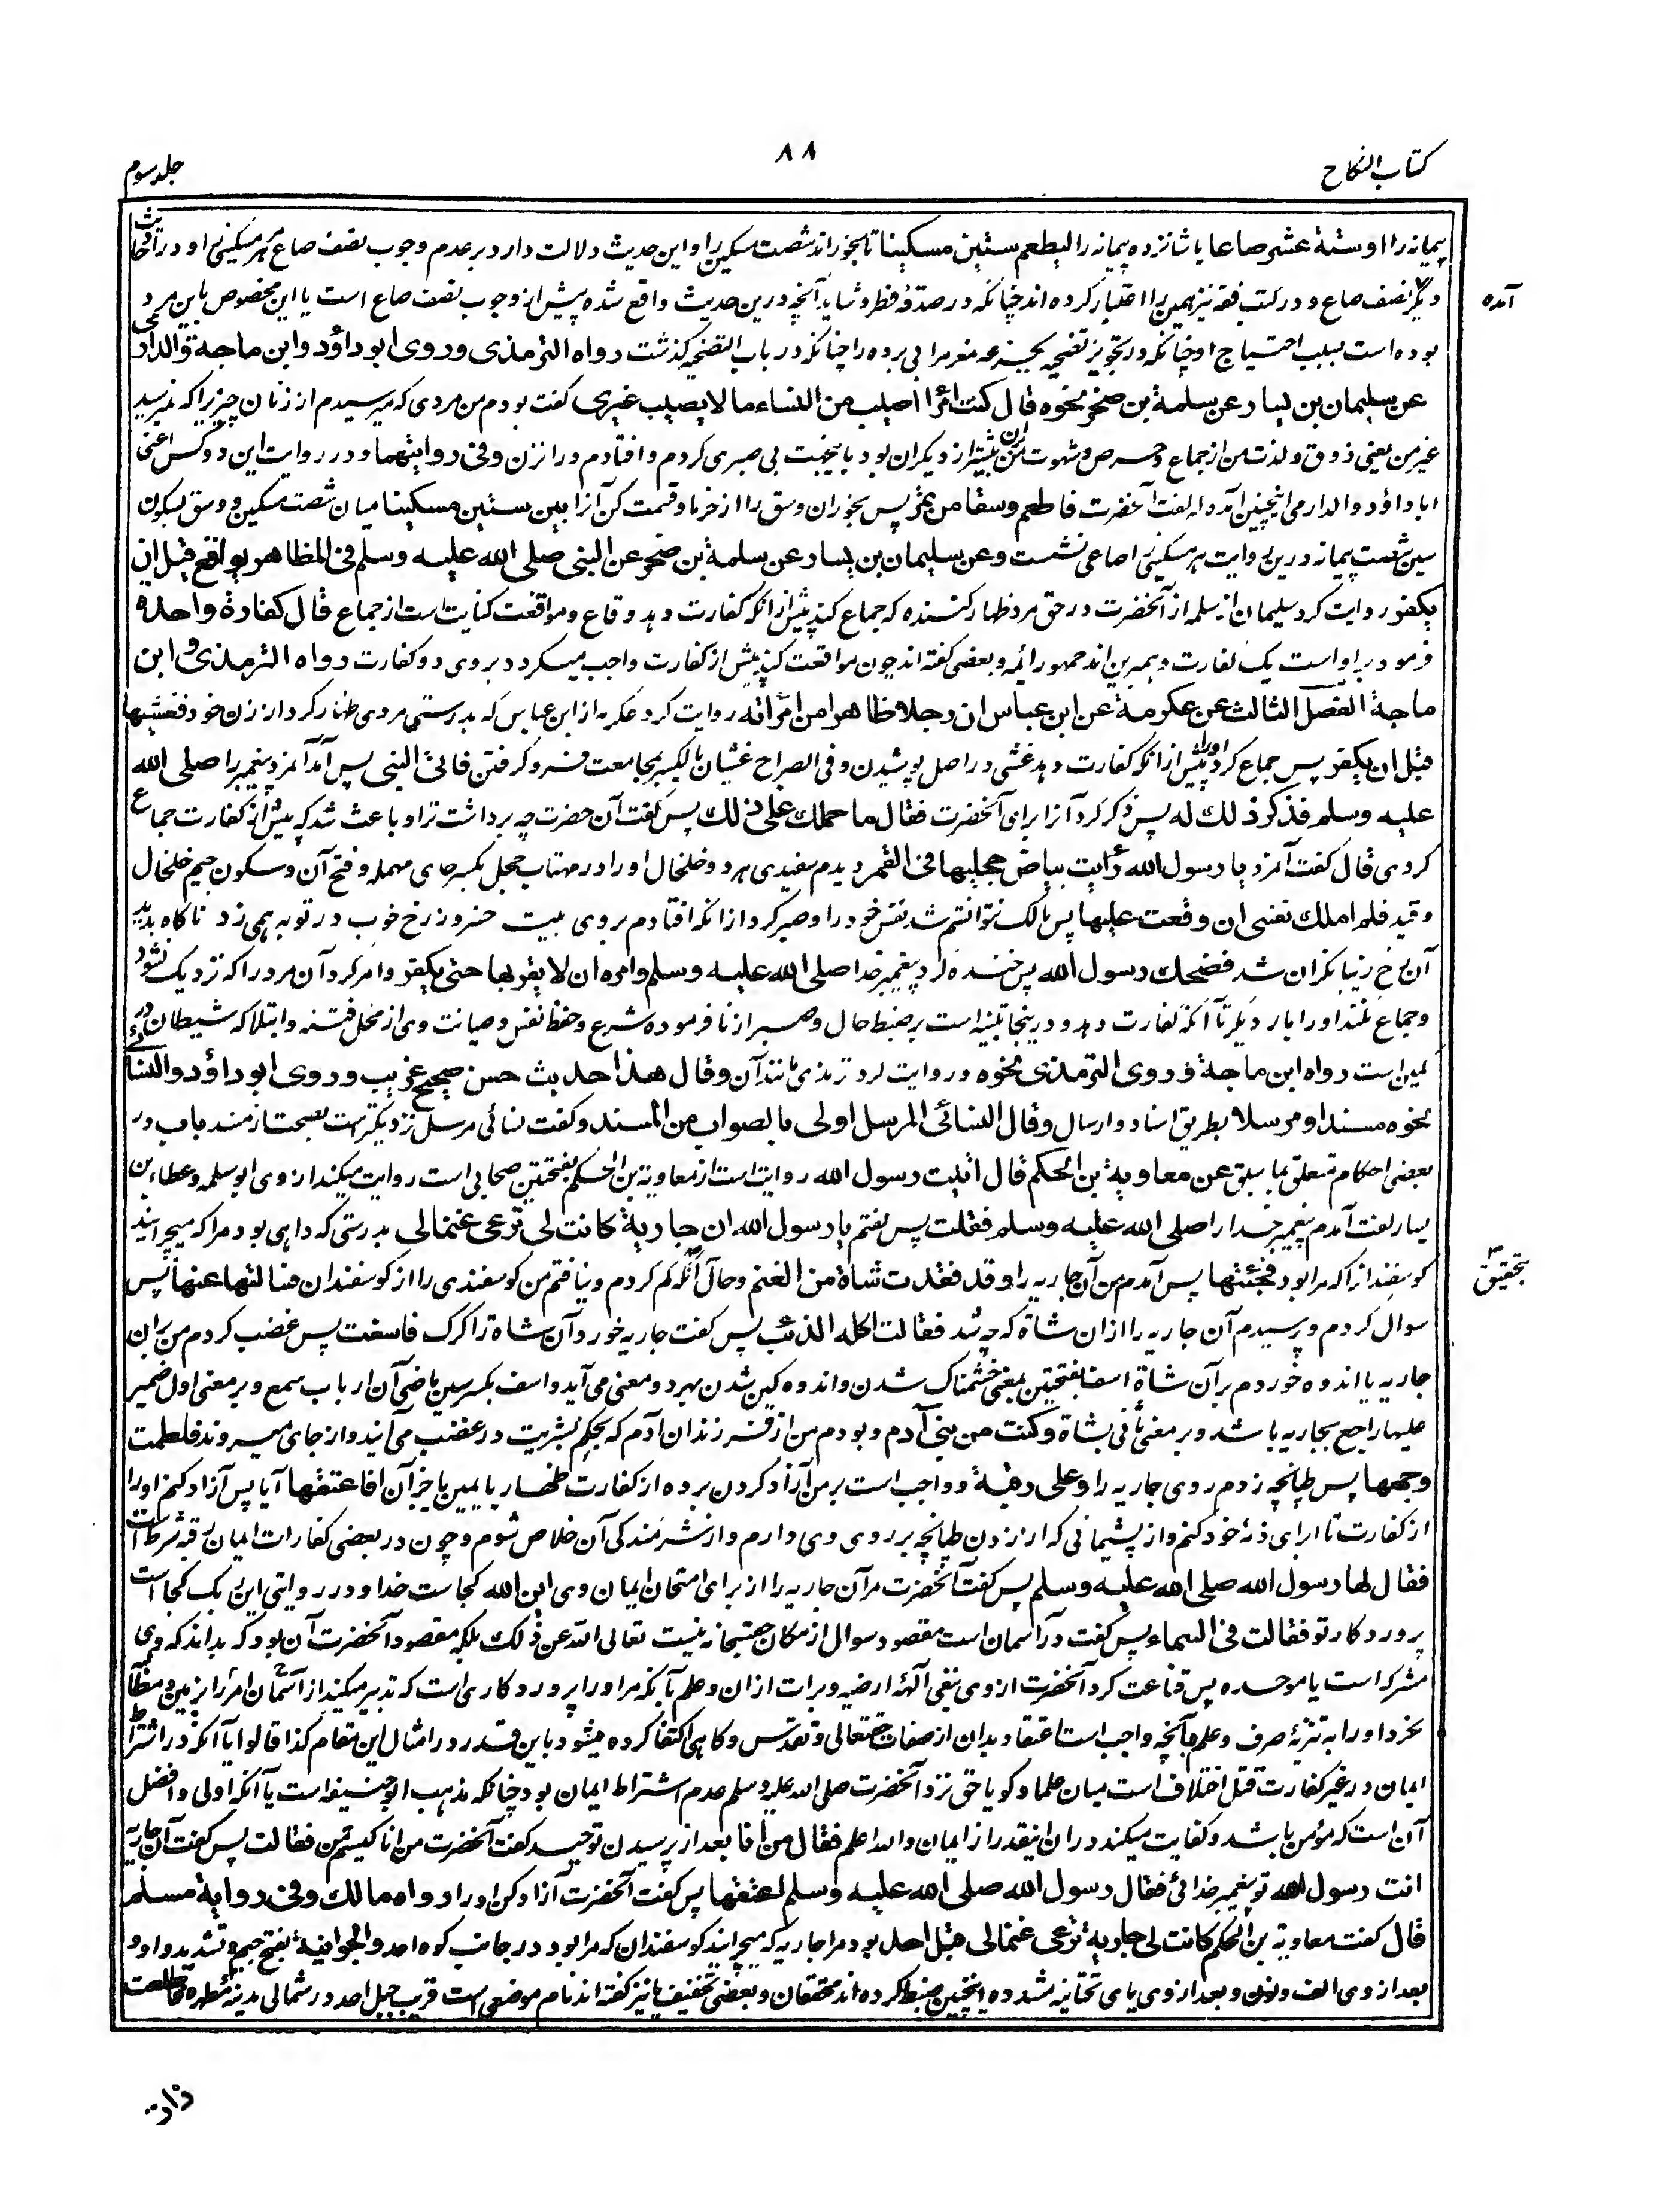 کتاب النکاح
۸۸
جلد سوم
پیمانه را او ستة عشر صاعا یا شانزده پیمانه را لیطعم ستین مسکینا تا بخوراند شصت مسکین را و این حدیث دلالت دارد بر عدم وجوب نصف صاع هر مسکینی را و در احادیث
دیگر نصف صاع و در کتب فقه نیز همین را اعتبار کرده اند چنانکه در صدقهٔ فطر و شاید آنچه درین حدیث واقع شده پیش از وجوب نصف صاع است یا این مخصوص باین مرد
آمده
بوده است بسبب احتیاج او چنانکه در تجویز تضحیه بجزعه معز مر ابی برده را چنانکه در باب التضحیه گذشت رواه الترمذی وروی ابو داؤد وابن ماجة والدارمی
عن سلیمان بن یسار عن سلمة بن صخر نحوه قال کنت امرا اصیب من النساء ما لا یصیب غیری گفت بودم من مردی که میرسیدم از زنان چیزیرا که نمیرسید
غیر من یعنی ذوق و لذت من از جماع و حرص و شهوت من بیشتر از دیگران بود باینجهت بی صبری کردم و افتادم ورا نزن وفی روایتهما و در روایت این دو کس اعنی
ابا داؤد والدارمی اینچنین آمده که گفت آنحضرت فاطعم وسقا من تمر پس بخوران وسق را از خرما و قسمت کن آنرا بین ستین مسکینا میان شصت مسکین و وسق بسکون
سین شصت پیمانه درین روایت هر مسکینی را صاعی نشست وعن سلیمان بن یسار عن سلمة بن صخر عن النبی صلی الله علیه وسلم فی المظاهر یواقع قبل ان
یکفر روایت کرد سلیمان از سلمه از آنحضرت در حق مرد ظهار کننده که جماع کند پیش از آنکه کفارت دهد و قاع و مواقعت کنایت است از جماع قال کفارة واحدة
فرمود بر او است یک کفارت و بهمین اند جمهور ائمه و بعضی گفته اند چون مواقعت کند پیش از کفارت واجب میگردد بروی دو کفارت رواه الترمذی وابن
ماجة الفصل الثالث عن عکرمة عن ابن عباس ان رجلا ظاهر من امرأته روایت کرد عکرمه از ابن عباس که بدرستی مردی ظهار کرد از زن خود فغشیها
قبل ان یکفر پس جماع کرد او را پیش از انکه کفارت دهد غشی در اصل پوشیدن و فی الصراح غشیان بالکسر مجامعت و فرو گرفتن فاتی النبی پس آمد آنمرد پیغمبر را صلی الله
علیه وسلم فذکر ذلک له پس ذکر کرد آنرا برای آنحضرت فقال ما حملک علی ذلک پس گفت آن حضرت چه برداشت ترا و باعث شد که پیش از کفارت جماع
کردی قال گفت آنمرد یا رسول الله رایت بیاض حجلیها فی القمر دیدم سفیدی هر دو خلخال او را در مهتاب حجل بکسر حای مهمله و فتح آن و سکون جیم خلخال
و قید فلم املک نفسی ان وقعت علیها پس مالک نتوانستم شد نفس خود را و صبر کرد از انکه افتادم بروی بیت خسرو ز رخ خوب در توبه همی زد ناگاه بدید
آن رخ زیبا نگران شد فضحک رسول الله پس خنده کرد پیغمبر خدا صلی الله علیه وسلم وامره ان لا یقربها حتی یکفر و امر کرد آن مرد را که نزدیک نشود
و جماع نکند او را بار دیگر تا آنکه کفارت دهد و درینجا تنبیه است بر ضبط حال و صبر از نا فرموده شرع و حفظ نفس و صیانت وی از محل فتنه و ابتلا که شیطان در
کمین است رواه ابن ماجة وروی الترمذی نحوه و روایت کرد ترمذی مانند آن وقال هذا حدیث حسن صحیح غریب وروی ابو داؤد والنسائی
نحوه مسندا ومرسلا بطریق اسناد و ارسال وقال النسائی المرسل اولی بالصواب من المسند و گفت نسائی مرسل نزدیکتر است بصحت از مسند باب در
بعضی احکام متعلق بما سبق عن معاویة بن الحکم قال اتیت رسول الله روایت است از معاویة بن الحکم بفتحتین صحابی است روایت میکند از وی ابو سلمه و عطاء بن
یسار گفت آمدم پیغمبر خدا را صلی الله علیه وسلم فقلت پس گفتم یا رسول الله ان جاریة کانت لی ترعی غنما لی بدرستی که داهی بود مرا که میچرانید
گوسفند از آ که مرا بود فجئتها پس آمدم من آن جاریه را وقد فقدت شاة من الغنم و حال آنکه گم کردم و نیافتم من گوسفندی را از گوسفندان فسالتها عنها پس
تحقیق
سوال کردم و پرسیدم آن جاریه را از ان شاة که چه شد فقالت اکله الذئب پس گفت جاریه خورد آن شاة را گرگ فاسفت پس غضب کردم من بران
جاریه یا اندوه خوردم بر آن شاة اسف بفتحتین بمعنی خشمناک شدن و اندوه گین شدن بهر دو معنی می آید و اسف بکسر سین ماضی آن از باب سمع و بر معنی اول ضمیر
علیها راجع بجاریه باشد و بر معنی ثانی بشاة وکنت من بنی آدم و بودم من از فرزندان آدم که بحکم بشریت در غضب می آیند و از جای میروند فلطمت
وجهها پس طپانچه زدم روی جاریه را وعلی رقبة و واجب است بر من آزاد کردن برده از کفارت ظهار یا یمین یا جز آن افاعتقها آیا پس آزاد کنم او را
از کفارت تا ابرای ذمهٔ خود کنم و از پشیمانی که از زدن طپانچه بر روی وی دارم و از شرمندگی آن خلاص شوم و چون در بعضی کفارات ایمان رقبه شرط است
فقال لها رسول الله صلی الله علیه وسلم پس گفت آنحضرت مر آن جاریه را از برای امتحان ایمان وی این الله کجاست خدا و در روایتی این ربک کجا است
پروردگار تو فقالت فی السماء پس گفت در آسمان است مقصود سوال از مکان حق سبحانه نیست تعالی الله عن ذلک بلکه مقصود آنحضرت آن بود که بداند که وی
مشرکه است یا موحده پس قناعت کرد آنحضرت از وی بنفی آلههٔ ارضیه و برات از ان و علم بآنکه مر او را پروردگاری است که تدبیر میکند از آسمان امر را بزمین و مطالبه
نکرد او را به تنزیهٔ صرف و علم بآنچه واجب است اعتقاد بدان از صفات حق تعالی و تقدس و گاهی اکتفا کرده میشود باین قدر در امثال این مقام کذا قالوا یا آنکه در اشتراط
ایمان در غیر کفارت قتل اختلاف است میان علما و گویا حق نزد آنحضرت صلی الله علیه وسلم عدم اشتراط ایمان بود چنانکه مذهب ابو حنیفه است یا آنکه اولی و افضل
آن است که مؤمن باشد و کفایت میکند در ان اینقدر از ایمان والله اعلم فقال من انا بعد از پرسیدن توحید گفت آنحضرت من انا کیستم من فقالت پس گفت آن جاریه
انت رسول الله تو پیغمبر خدائی فقال رسول الله صلی الله علیه وسلم اعتقها پس گفت آنحضرت آزاد کن او را رواه مالک وفی روایة مسلم
قال گفت معاویة بن الحکم کانت لی جاریة ترعی غنما لی قبل احد بود مرا جاریه که میچرانید گوسفندان که مرا بود در جانب کوه احد والجوانیة بفتح جیم و تشدید واو و
بعد از وی الف و نون و بعد از وی یای تحتانیه مشدده اینچنین ضبط کرده اند محققان و بعضی بتخفیف یا نیز گفته اند نام موضعی است قریب جبل احد در شمالی مدینهٔ مطهره فاطلعت
ذات